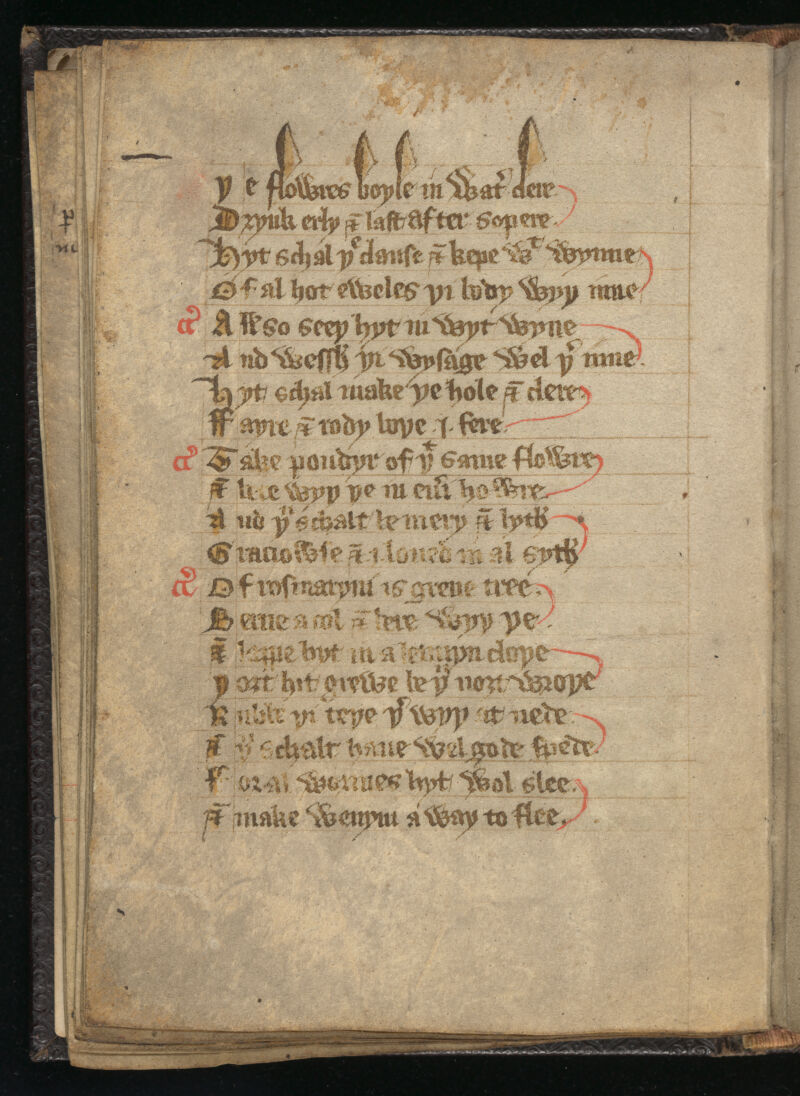 þ e flowres boyle in wat' clere
Drynk erly & last after sopere
Hyt schal þe clanse & kepe wt wynne
Of al hot eweles þi body wyþ inne
Also seeþ hyt in wyt wyne
And wessh þi wysage wel þer inne
Hyt schal make þe hole & clere
ffayre & rody boþe .i. fere
Take poudyr of þt same flowre
& bere wyþ þe in eueri howre
And þu schalt be mery & lyth
Graciowse & iloued in al syth
Of rosmaryni is grene tree
Berne a col & bere wyþ þe
& lappe hyt in a lennyn cloþe
þort hit grewe be þu nozt wroþe
Rubbe þi teþe þer wyþ at nede
& þu schalt haue wel gode spede
ffor al wormes hyt wol slee
& make wenym a way to flee.